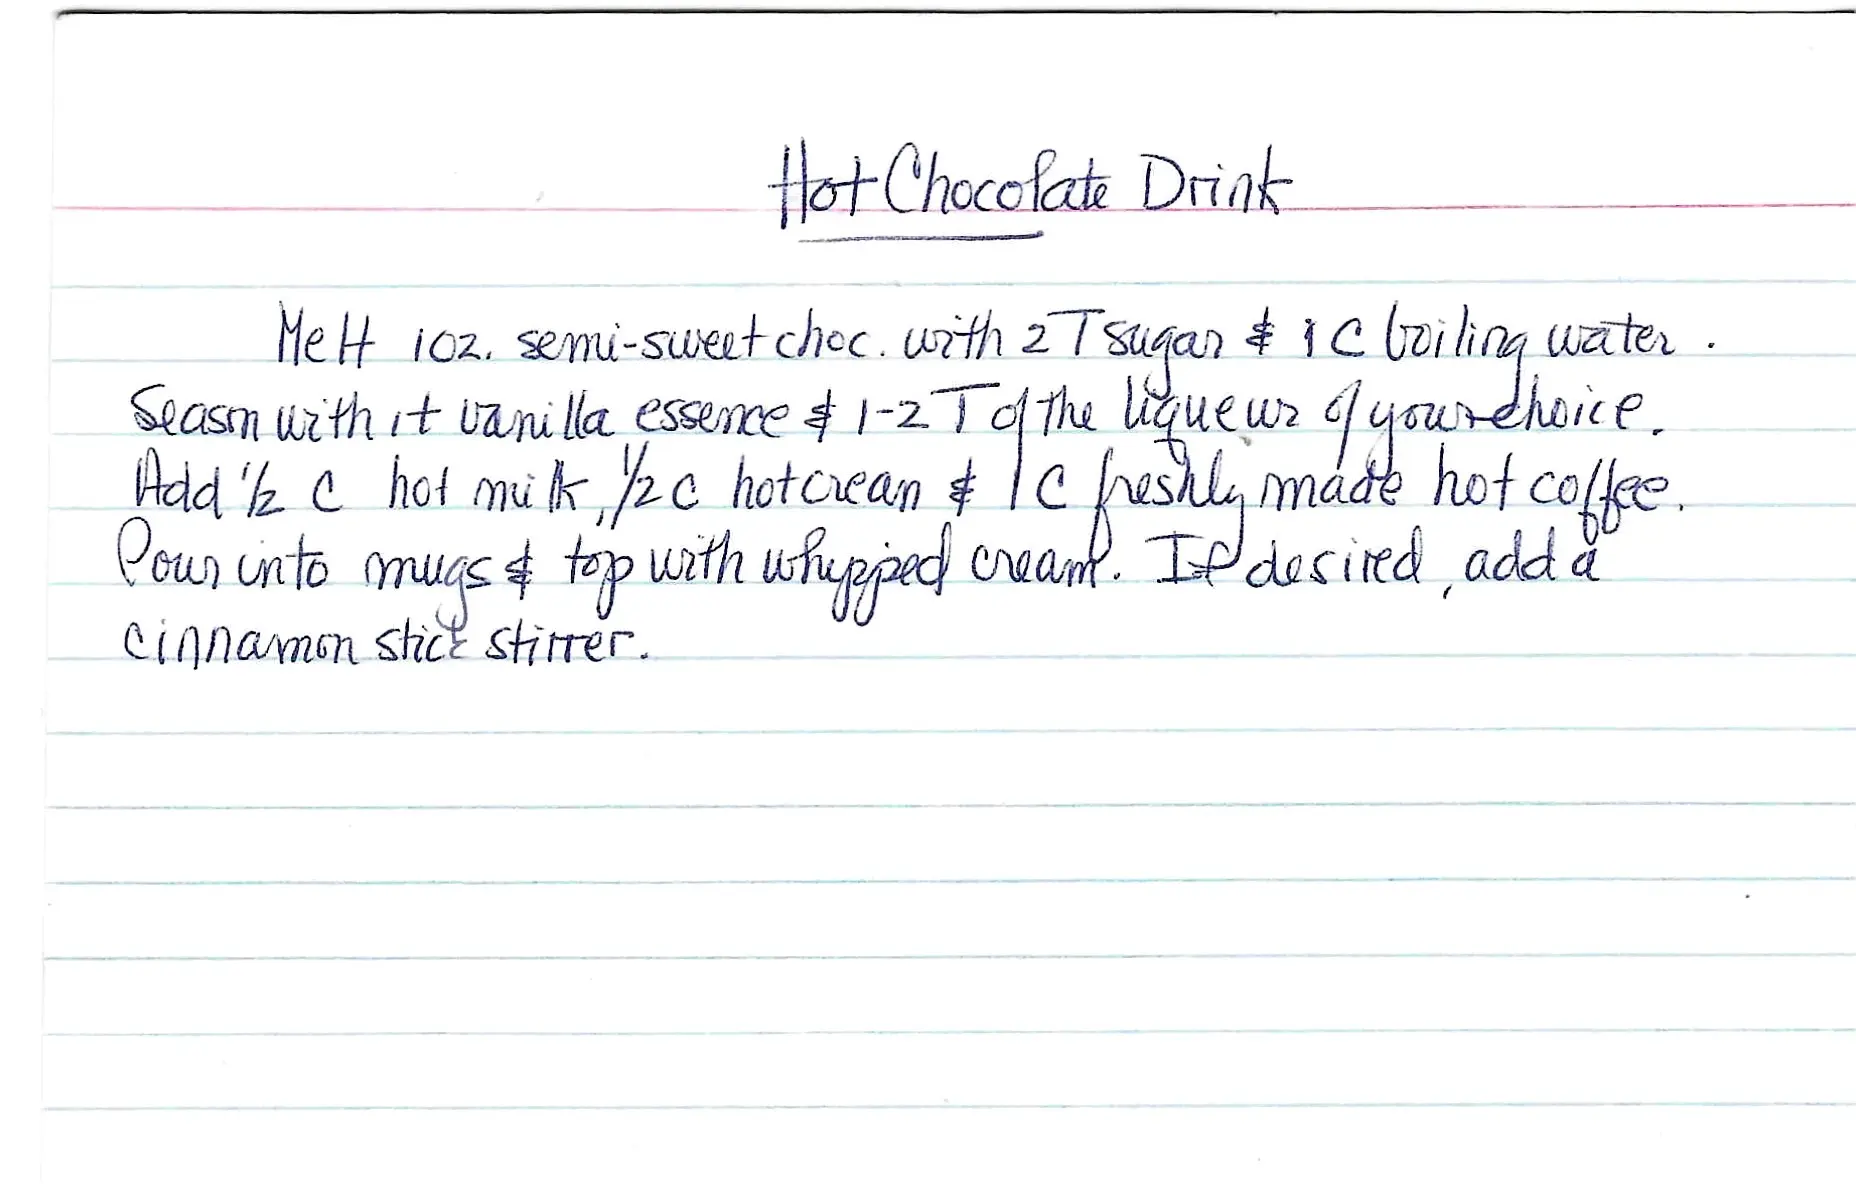 Hot Chocolate Drink
Melt 1oz. semi-sweet choc. with 2 T sugar & 1 C boiling water.
Season with 1t vanilla essence & 1-2 T of the liqueur of your choice.
Add 1/2 C hot milk, 1/2 C hot cream & 1 C freshly made hot coffee.
Pour into mugs & top with whipped cream. If desired, add a
cinnamon stick stirrer.